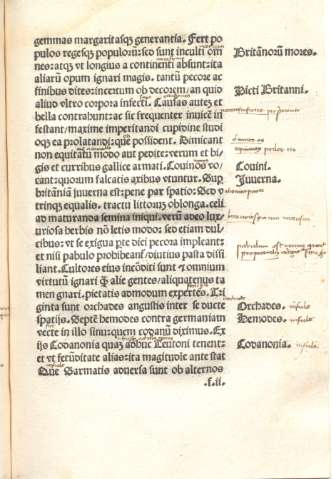 gemmas margaritasqʒ generantia. Fert po
pulos regesqʒ populorū: sed sunt inculti om
nes: atqʒ vt longius a continenti absunt: ita
aliarū opum ignari magis. tantū pecore ac
finibus dites: incertum ob decorem/ an quid
aliud vltro corpora infecti. Causas autē et
bella contrahunt: ac sic frequenter inuicē in
festant/ maxime imperitandi cupidine studi
oqʒ ea prolatandi: que possident. Dimicant
non equitatu modo aut pedite: verum et bi
gis et curribus gallice armati. Couinos vo
cant: quorum falcatis axibus vtuntur. Sup
britāniā iuuerna est: pene par spatio: Sed v
trinqʒ equalis. tractu littorum oblonga. celi
ad maturanda semina iniqui. verū adeo luxu
riosa herbis nō letis modo: sed etiam dulci
bus: vt se exigua pte diei pecora impleant:
et nisi pabulo prohibeant/ diutius pasta dissi
liant. Cultores eius incōditi sunt et omnium
virtutū ignari: alie gentes/ aliquatenus ta
men gnari. pietatis admodum expertes. Tri
ginta sunt orchades angustiis inter se ducte
spatijs. Septē hemodes contra germaniam
vecte in illo sinu: quem codanū diximus. Ex
ijs Codanonia quaz adhuc Teutoni tenent:
et vt fecūditate alias: ita magitudie ante stat
Que Sarmatis aduersa sunt ob alternos
.f.ii.
Britānorū mores.
Picti Britanni.
Couini.
Juuerna.
Orchades. insule
Hemodes. insule
Codanonia. insula